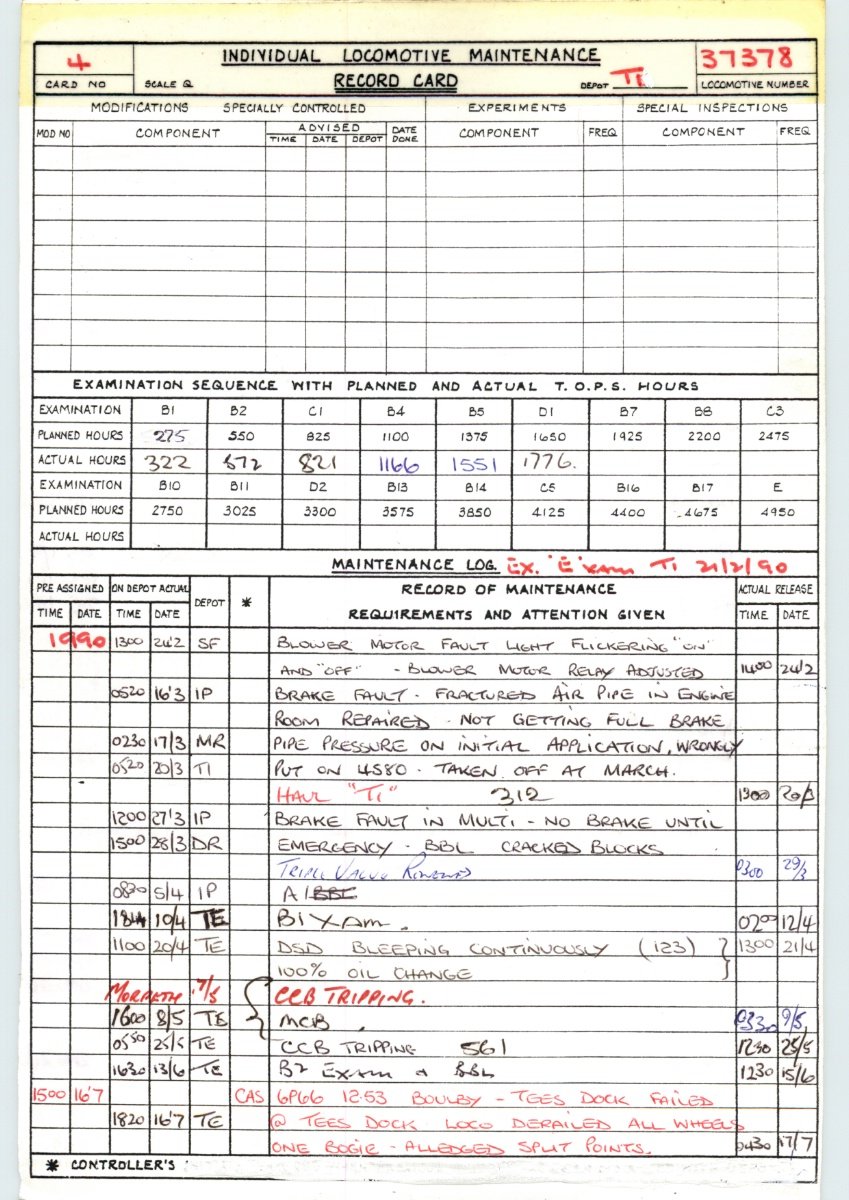 4 INDIVIDUAL LOCOMOTIVE MAINTENANCE 37378
CARD NO SCALE Q RECORD CARD DEPOT TI LOCOMOTIVE NUMBER
MODIFICATIONS SPECIALLY CONTROLLED EXPERIMENTS SPECIAL INSPECTIONS
MOD NO COMPONENT ADVISED DATE DONE COMPONENT FREQ COMPONENT FREQ
TIME DATE DEPOT
EXAMINATION SEQUENCE WITH PLANNED AND ACTUAL T.O.P.S. HOURS
EXAMINATION B1 B2 C1 B4 B5 D1 B7 B8 C3
PLANNED HOURS 275 550 825 1100 1375 1650 1925 2200 2475
ACTUAL HOURS 322 572 821 1166 1551 1776.
EXAMINATION B10 B11 D2 B13 B14 C5 B16 B17 E
PLANNED HOURS 2750 3025 3300 3575 3850 4125 4400 4675 4950
ACTUAL HOURS
MAINTENANCE LOG. EX. 'E' XAM TI 21/2/90
PRE ASSIGNED ON DEPOT ACTUAL DEPOT * RECORD OF MAINTENANCE ACTUAL RELEASE
TIME DATE TIME DATE REQUIREMENTS AND ATTENTION GIVEN TIME DATE
1990 1300 24'2 SF BLOWER MOTOR FAULT LIGHT FLICKERING "ON"
AND "OFF" - BLOWER MOTOR RELAY ADJUSTED 1400 24/2
0520 16'3 IP BRAKE FAULT - FRACTURED AIR PIPE IN ENGINE
ROOM REPAIRED - NOT GETTING FULL BRAKE
0230 17/3 MR PIPE PRESSURE ON INITIAL APPLICATION, WRONGLY
0520 20/3 TI PUT ON 4S80 - TAKEN OFF AT MARCH.
HAUL "TI" 312 1300 20/3
1200 27'3 IP BRAKE FAULT IN MULTI - NO BRAKE UNTIL
1500 28/3 DR EMERGENCY - BBL CRACKED BLOCKS
TRIPLE VALVE RENEWED 0300 29/3
0830 5/4 IP A1 BBL
10/4 TE B1 XAM. 0200 12/4
1100 20/4 TE DSD BLEEPING CONTINUOUSLY (123) 1300 21/4
100% OIL CHANGE
MORPETH 7/5 CCB TRIPPING.
1600 8/5 TE MCB 0330 9/5
0550 25/5 TE CCB TRIPPING 561 1230 25/5
1630 13/6 TE B2 EXAM & BBL 1230 15/6
1500 16'7 CAS 6P66 12.53 BOULBY - TEES DOCK FAILED
1820 16'7 TE @ TEES DOCK LOCO DERAILED ALL WHEELS
ONE BOGIE - ALLEDGED SPLIT POINTS. 0430 17/7
* CONTROLLER'S